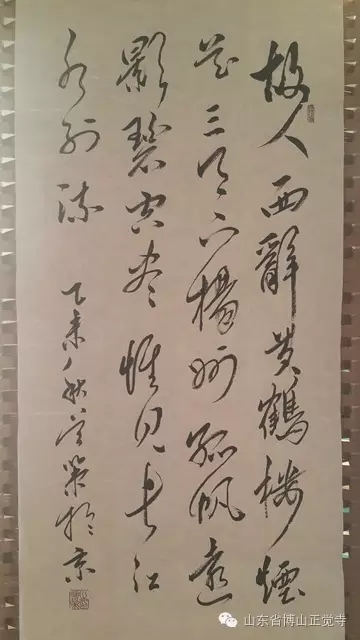 故人西辭黃鶴樓煙
花三月下楊州孤帆遠
影碧空盡惟見長江
天際流 乙未秋 於京
山东省博山正觉寺